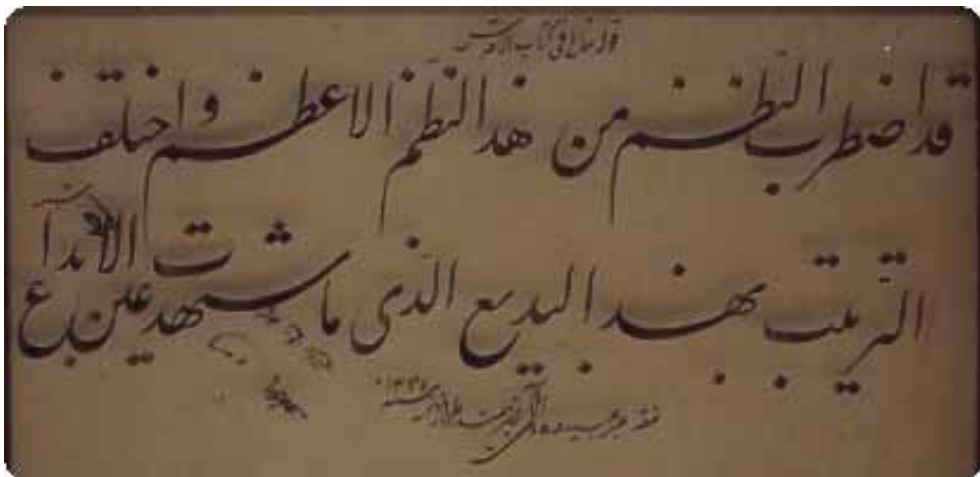 قوله تعالی فی کتاب الاقدس
قد اضطرب النظم من هذا النظم الاعظم و اختلف
الترتیب بهذا البدیع الذی ما شهدت عین الابداع شبهه